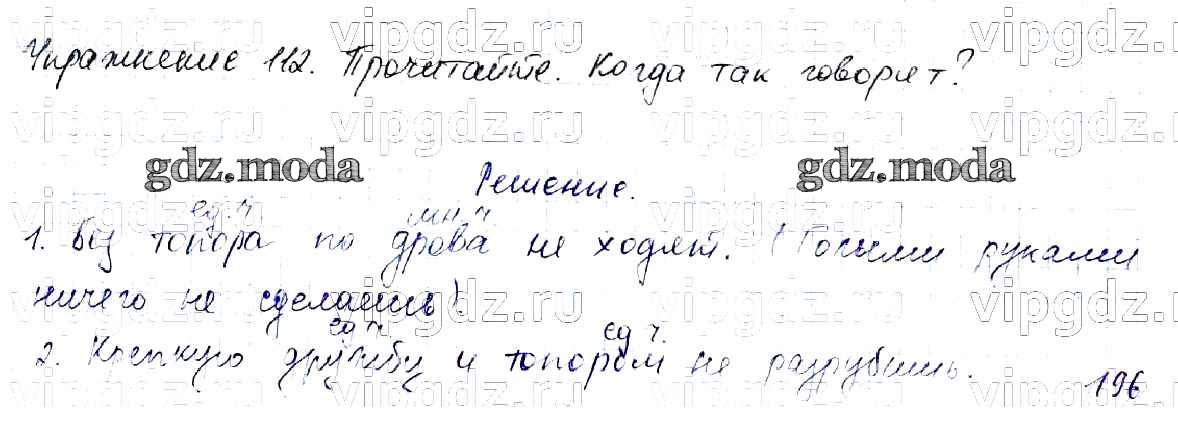 Упражнение 112. Прочитайте. Когда так говорят?
gdz.moda gdz.moda
Решение.
ед. ч мн. ч
1. Без топора по дрова не ходят. (Голыми руками
ничего не сделаешь).
ед ч ед ч.
2. Крепкую дружбу и топором не разрубишь.
196
vipgdz.ru vipgdz.ru vipgdz.ru vipgdz.ru